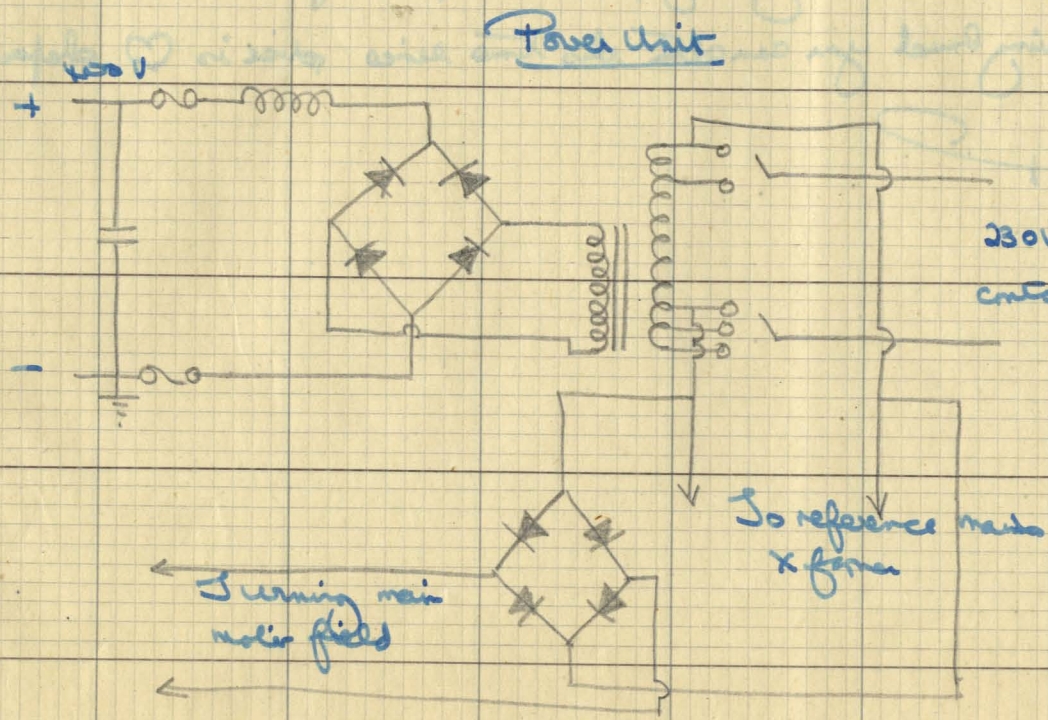 Power Unit
400 V
+
230V
-
To reference mains
X former
Turning main
motor field